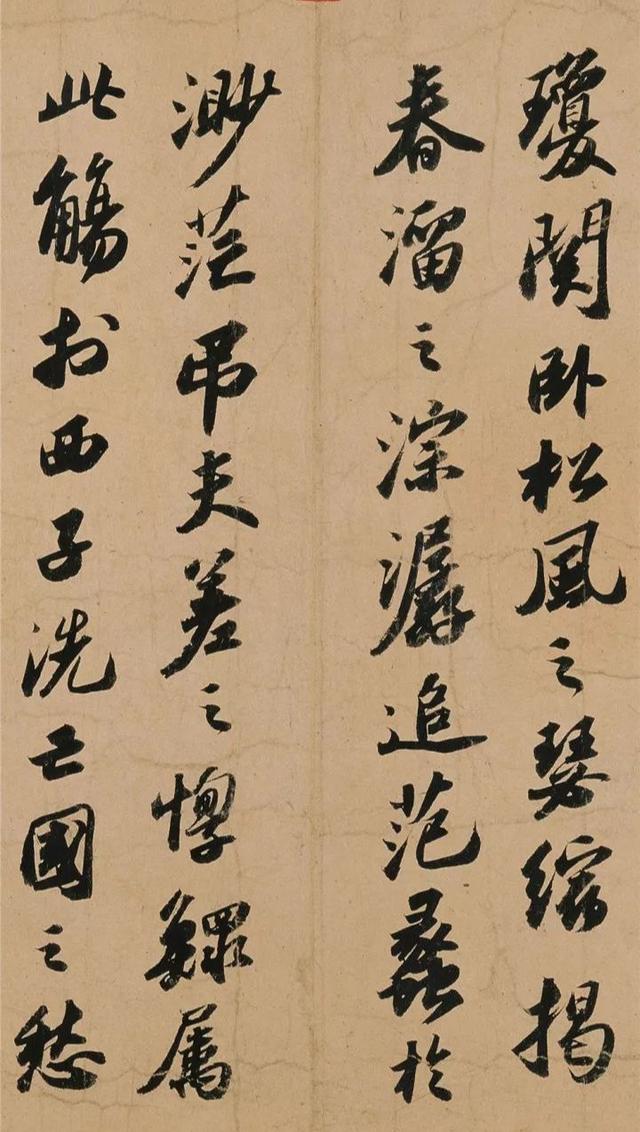 瓊関卧松風之瑟縮揭
春溜之淙潺追范蠡於
渺茫吊夫差之惸鰥属
此觴於西子洗亡國之愁